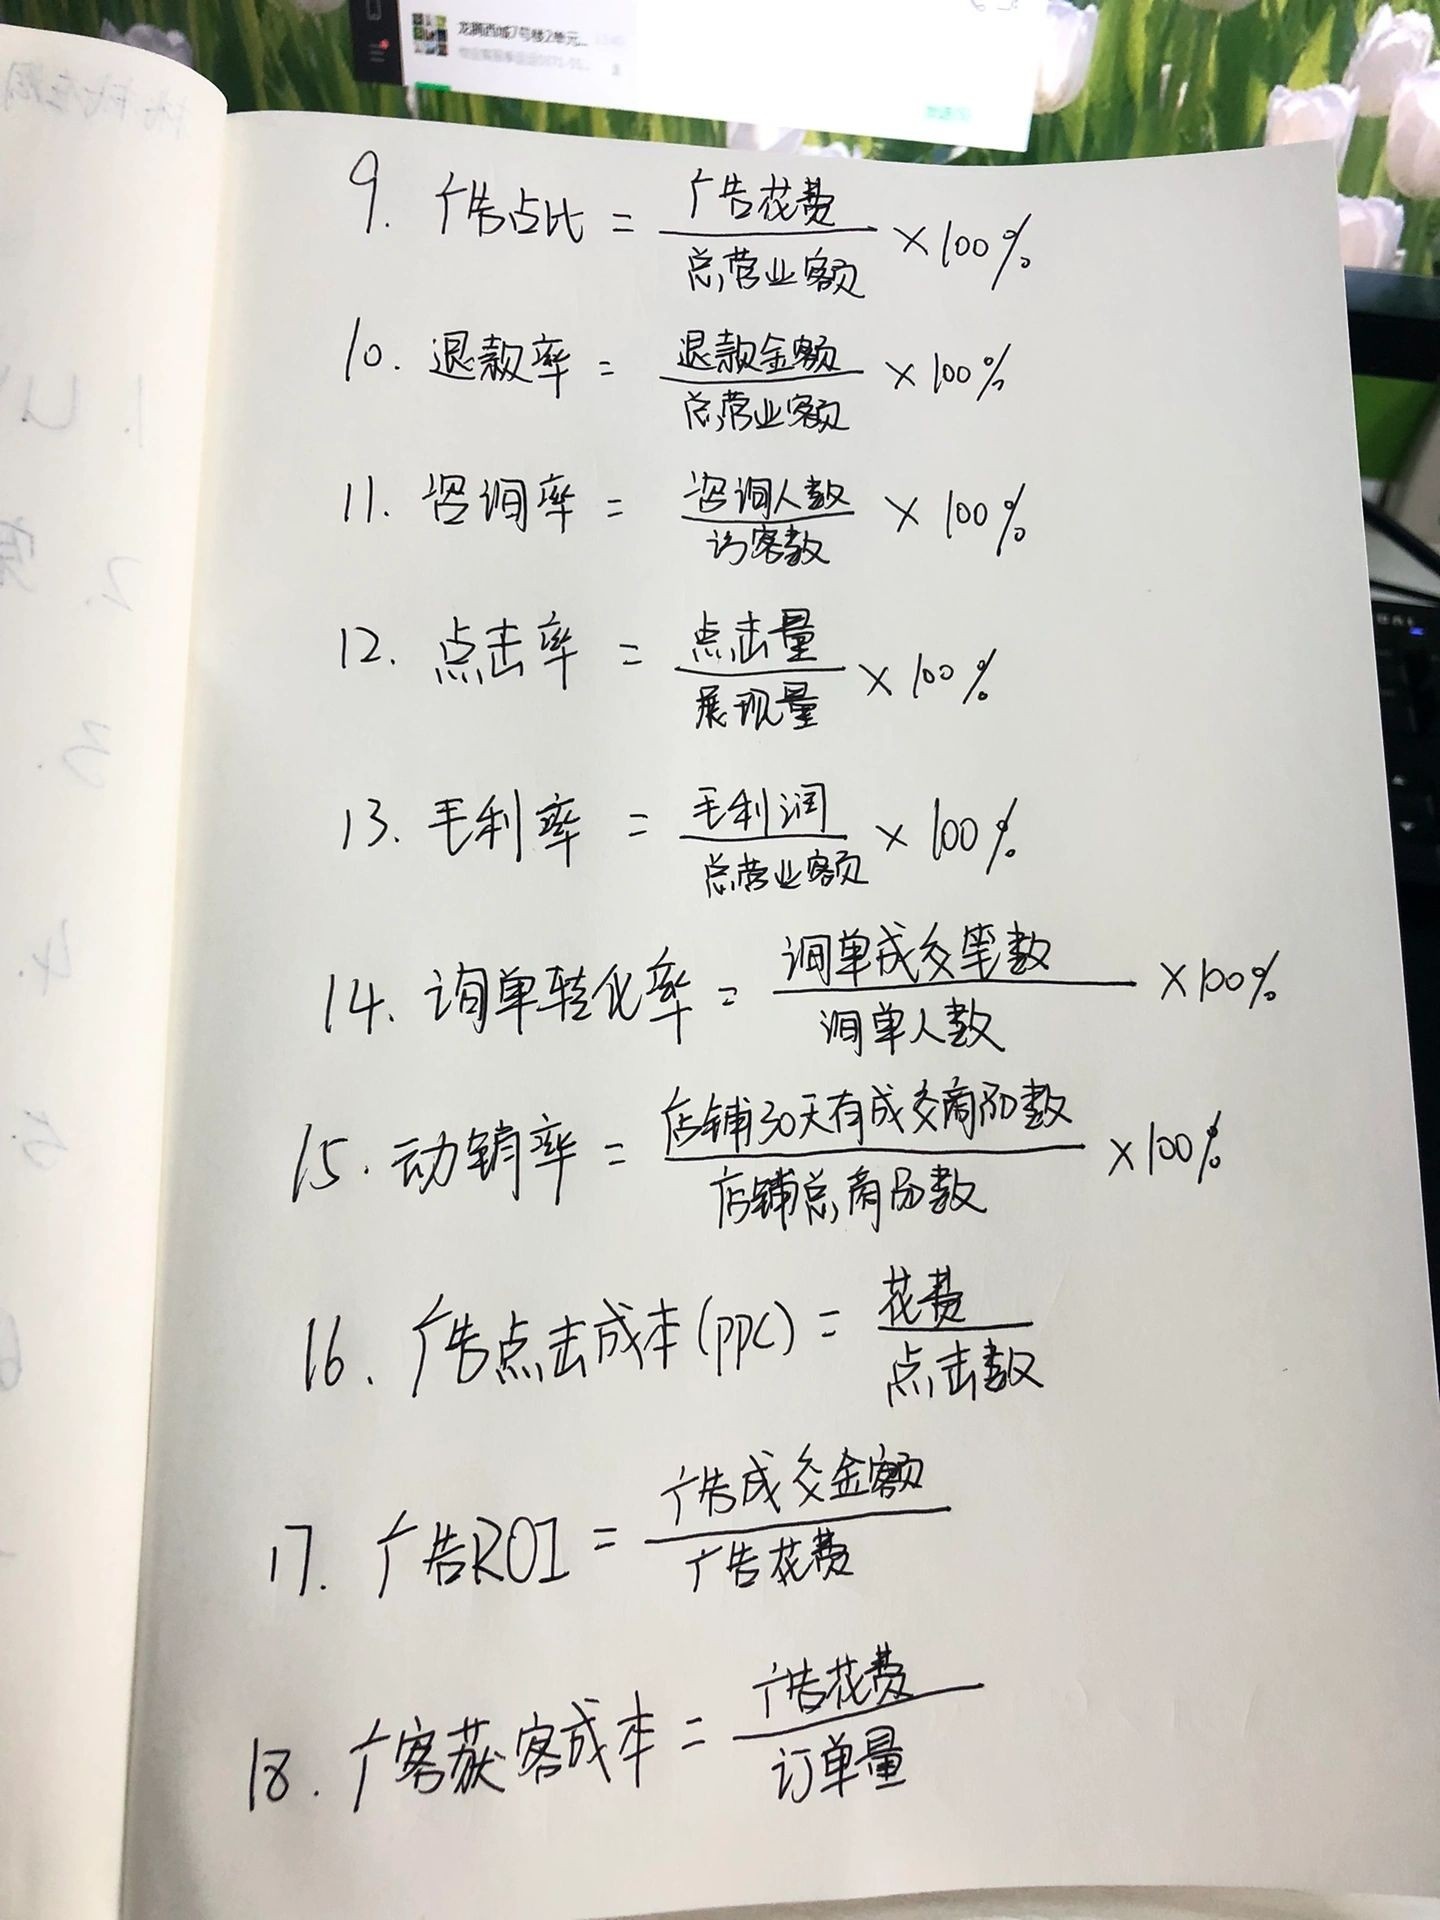 龙腾西城7号楼2单元...
9. 广告占比 = 广告花费 / 总营业额 × 100%
10. 退款率 = 退款金额 / 总营业额 × 100%
11. 咨询率 = 咨询人数 / 访客数 × 100%
12. 点击率 = 点击量 / 展现量 × 100%
13. 毛利率 = 毛利润 / 总营业额 × 100%
14. 询单转化率 = 询单成交笔数 / 询单人数 × 100%
15. 动销率 = 店铺30天有成交商品数 / 店铺总商品数 × 100%
16. 广告点击成本(ppc) = 花费 / 点击数
17. 广告ROI = 广告成交金额 / 广告花费
18. 广客获客成本 = 广告花费 / 订单量